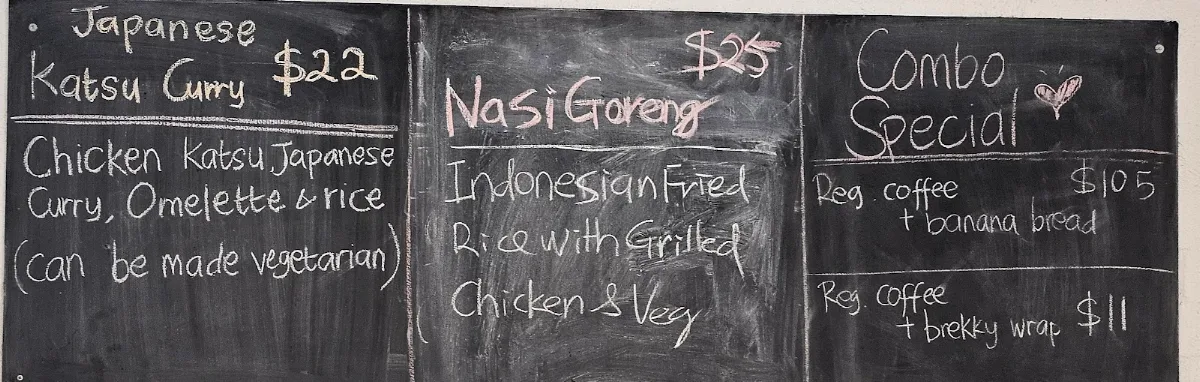 Japanese
Katsu Curry $22
Chicken Katsu Japanese
Curry, Omelette & rice
(can be made vegetarian)
$25
Nasi Goreng
Indonesian Fried
Rice with Grilled
Chicken & Veg
Combo
Special
Reg. coffee $10 5
+ banana bread
Reg. coffee
+ brekky wrap $11